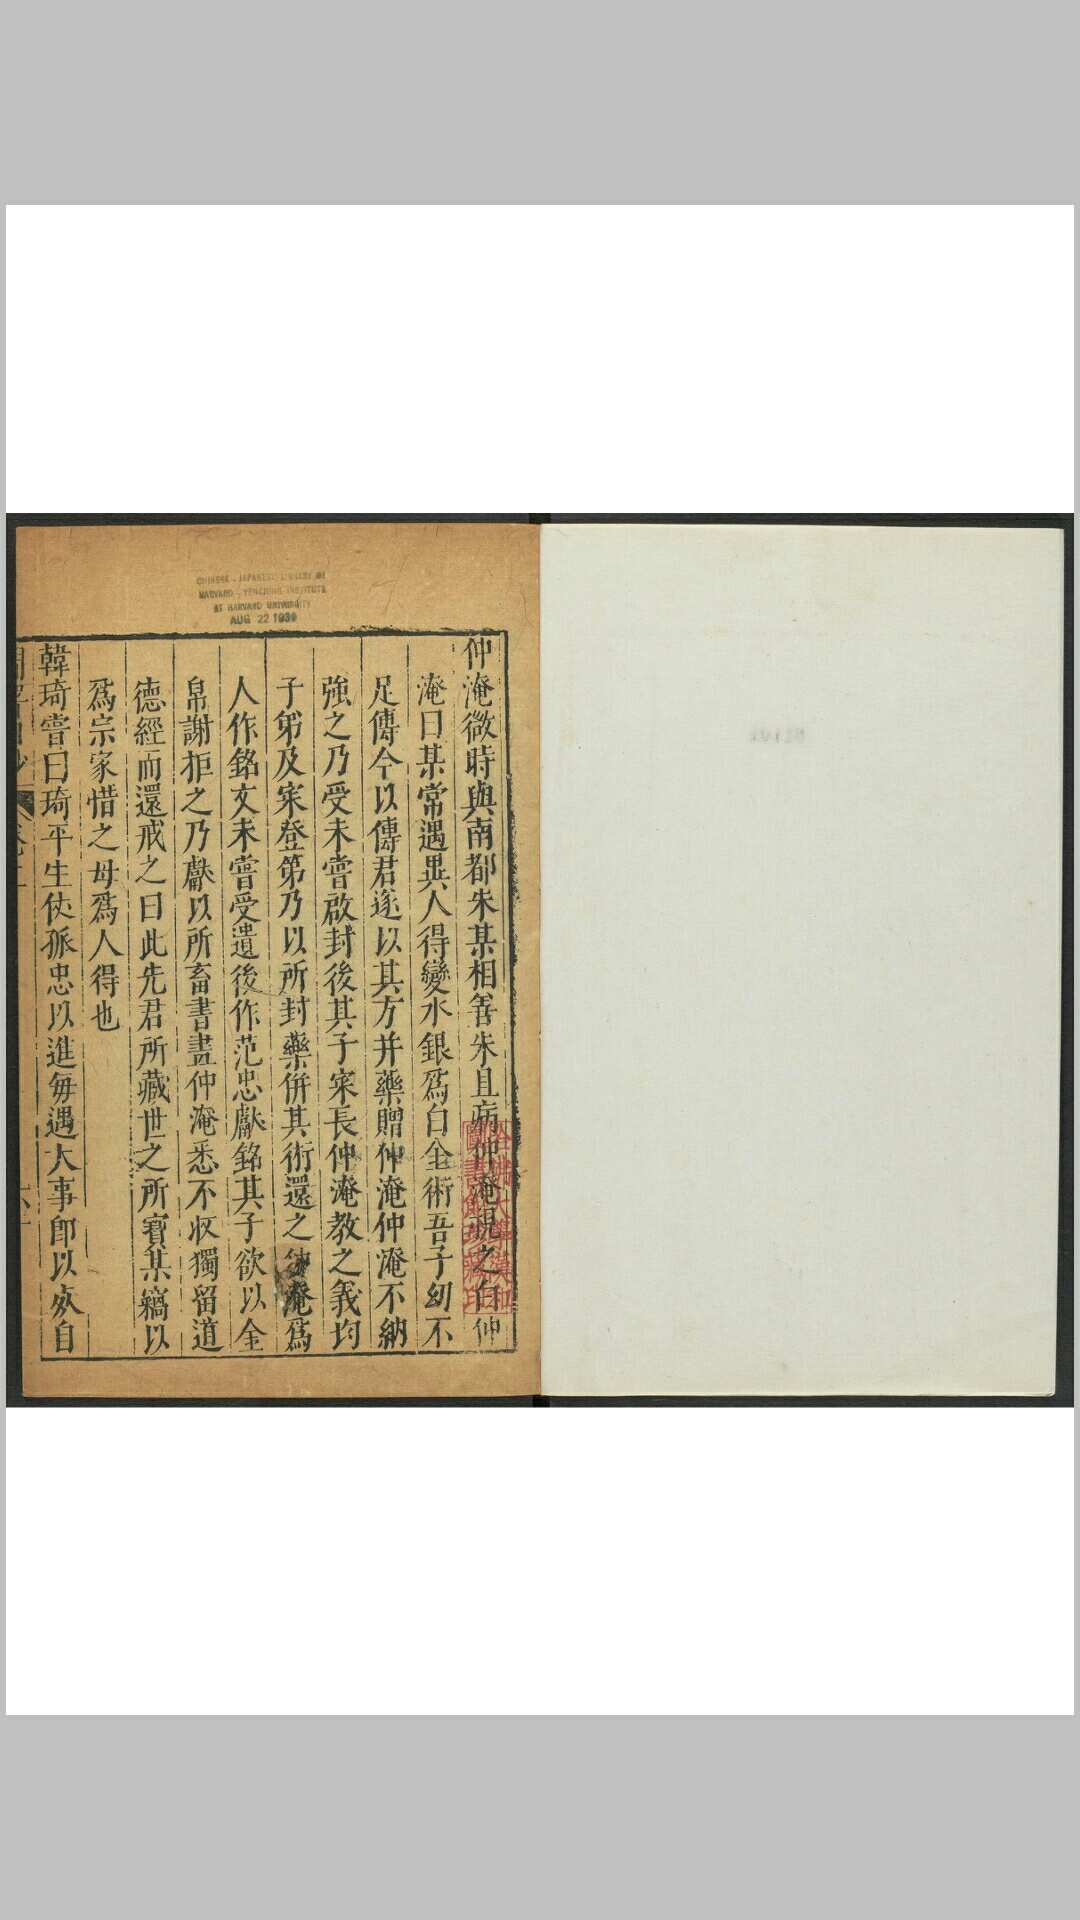 CHINESE - JAPANESE LIBRARY OF
HARVARD - YENCHING INSTITUTE
AT HARVARD UNIVERSITY
AUG 22 1939
仲淹微時與南都朱某相善朱且病仲淹視之白仲
淹曰某常遇異人得變水銀爲白金術吾子幼不
足傳今以傳君遂以其方并藥贈仲淹仲淹不納
強之乃受未嘗啟封後其子寀長仲淹教之義均
子弟及寀登第乃以所封藥倂其術還之仲淹爲
人作銘文未嘗受遺後作范忠獻銘其子欲以金
帛謝拒之乃獻以所畜書畫仲淹悉不收獨留道
德經而還戒之曰此先君所藏世之所寶某竊以
爲宗家惜之毋爲人得也
韓琦嘗曰琦平生仗孤忠以進每遇大事即以死自
哈佛大學漢和
圖書館珍藏印